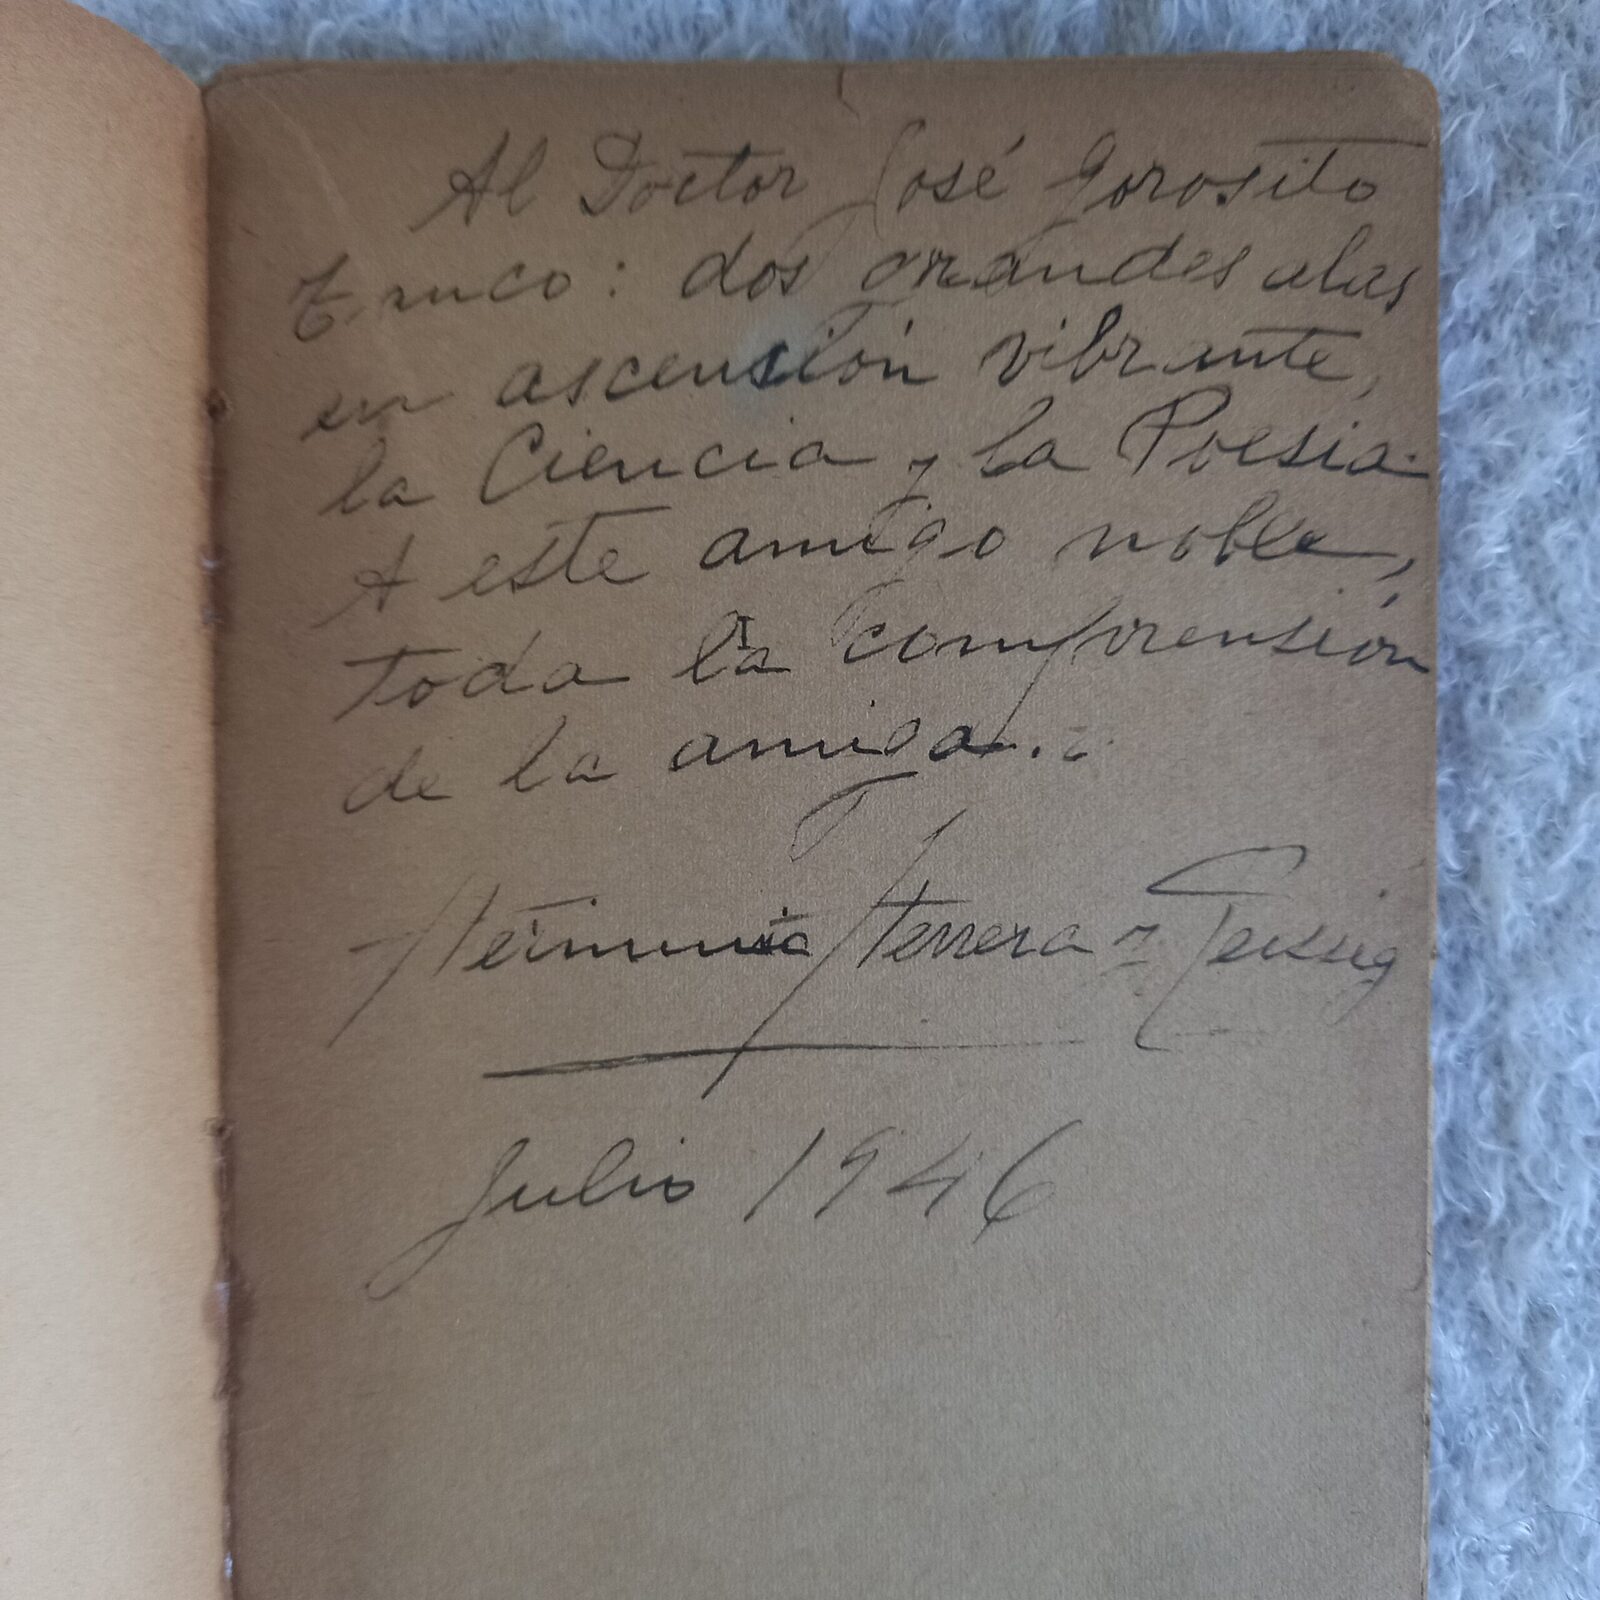 Al Doctor José Gorosito
Tanco: dos grandes alas
en ascensión vibrante,
la Ciencia y la Poesia.
A este amigo noble,
toda la comprensión
de la amiga.
Herminia Herrera y Reissig
Julio 1946